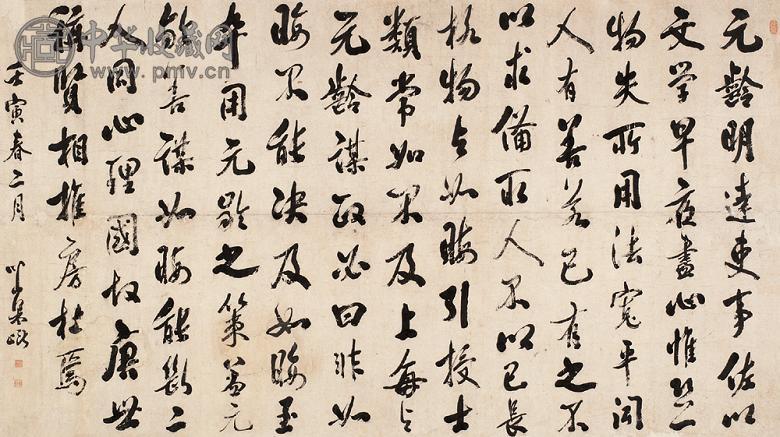 元齡明達吏事佐以
文學早夜盡心惟恐一
物失所用法寬平聞
人有善若己有之不
以求備取人不以己長
格物與如晦引授士
類常如不及上每與
元齡謀政必曰非如
晦不能決及如晦至
卒用元齡之策蓋元
齡善謀如晦能斷二
人同心理國故唐世
稱賢相推房杜焉
壬寅春二月
中华收藏网
www.pmv.cn